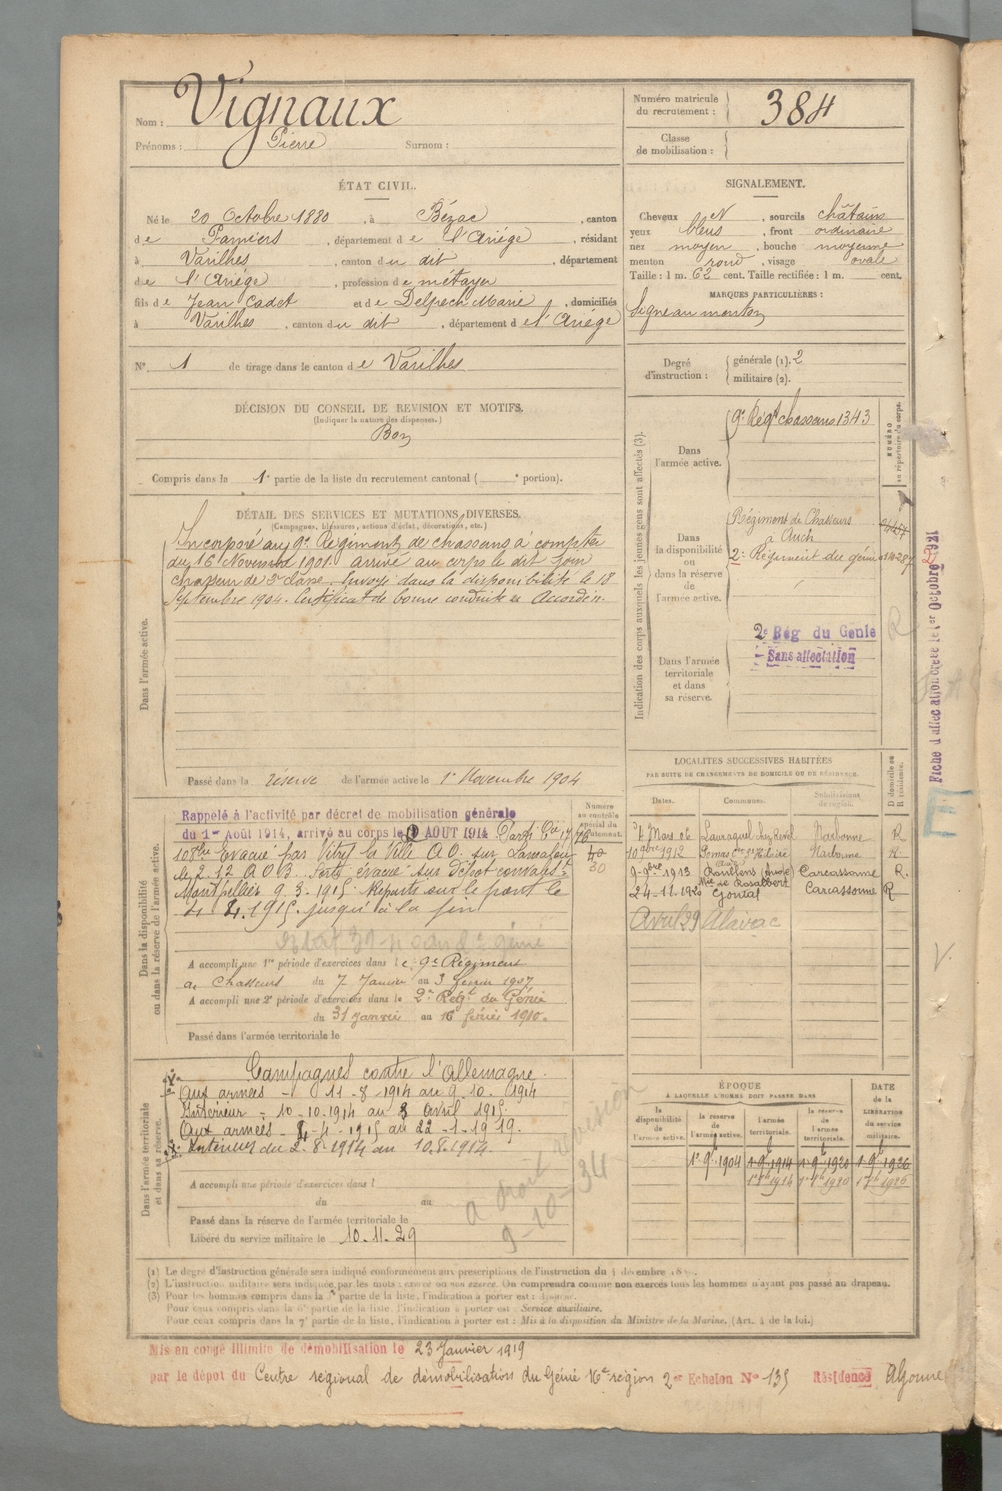 Nom : Vignaux
Prénoms : Pierre Surnom :
Numéro matricule du recrutement : 384
Classe de mobilisation :
ÉTAT CIVIL.
Né le 20 Octobre 1880, à Bézac, canton
de Pamiers, département de l'Ariége, résidant
à Varilhes, canton du dit, département
de l'Ariége, profession de métayer
fils de Jean Cadet et de Delpech Marie, domiciliés
à Varilhes, canton du dit, département de l'Ariége
N° 1 de tirage dans le canton de Varilhes
DÉCISION DU CONSEIL DE REVISION ET MOTIFS.
(Indiquer la nature des dispenses.)
Bon
Compris dans la 1e partie de la liste du recrutement cantonal ( e portion).
SIGNALEMENT.
Cheveux N, sourcils châtains
yeux bleus, front ordinaire
nez moyen, bouche moyenne
menton rond, visage ovale
Taille : 1 m. 62 cent. Taille rectifiée : 1 m. cent.
MARQUES PARTICULIÈRES :
Signe au menton
Degré d'instruction : générale (1). 2
militaire (2).
DÉTAIL DES SERVICES ET MUTATIONS DIVERSES.
(Campagnes, blessures, actions d'éclat, décorations, etc.)
Dans l'armée active.
Incorporé au 9e Régiment de chasseurs à compter
du 16 Novembre 1901. arrivé au corps le dit jour
chasseur de 2e classe. Envoyé dans la disponibilité le 18
Septembre 1904. Certificat de bonne conduite "Accordé".
Passé dans la réserve de l'armée active le 1er Novembre 1904
Indication des corps auxquels les jeunes gens sont affectés (3).
NUMÉRO au répertoire du corps.
Dans l'armée active.
9e Régt chasseurs 1343
Dans la disponibilité ou dans la réserve de l'armée active.
Régiment de Chasseurs
à Auch
2e Régiment du génie
Dans l'armée territoriale et dans sa réserve.
2e Rég du Génie
Sans affectation
Fiche d'affectation créée le 1er Octobre 1921
LOCALITÉS SUCCESSIVES HABITÉES
PAR SUITE DE CHANGEMENTS DE DOMICILE OU DE RÉSIDENCE.
Dates. Communes. Subdivisions de région. D domicile ou R résidence.
4 Mars 06 Narbonne R
10 9bre 1912 Pomas Narbonne R.
9-9bre 1913 Roullens (Aude) Carcassonne R.
24-11-1920 Mie de Rosalbert Gontal Carcassonne R
Avril 29 Alairac
Dans la disponibilité ou dans la réserve de l'armée active.
Numéro au contrôle spécial du
Rappelé à l'activité par décret de mobilisation générale
du 1er Août 1914, arrivé au corps le AOUT 1914
Evacué par Vitry la Ville A O. sur Lamalou
Montpellier 9.3.1915. Reparti sur le front le
4. 4. 1915. jusqu'à la fin
A accompli une 1re période d'exercices dans le 9e Régiment
de Chasseurs du 7 Janvier au 3 février 1907
A accompli une 2e période d'exercices dans le 2e Régt du Génie
du 31 janvier au 16 février 1910.
Passé dans l'armée territoriale le
Dans l'armée territoriale et dans sa réserve.
Campagnes contre l'Allemagne.
Aux armées - 11-8-1914 au 9.10.1914
Intérieur - 10-10-1914 au 3 avril 1915.
Aux armées - 4-4-1915 au 22-1-1919.
Intérieur du 2.8.1914 au 10.8.1914.
A accompli une période d'exercices dans l
du au
Passé dans la réserve de l'armée territoriale le
Libéré du service militaire le 10.11.29
9-10-34
ÉPOQUE
À LAQUELLE L'HOMME DOIT PASSER DANS
la disponibilité de l'armée active. la réserve de l'armée active. l'armée territoriale. la réserve de l'armée territoriale.
DATE de la LIBÉRATION du service militaire.
1er 9b 1904 1-9b 1914 1-9b 1920 1-9b 1926
(1) Le degré d'instruction générale sera indiqué conformément aux prescriptions de l'instruction du
(2) L'instruction militaire sera indiquée par les mots : exercé ou non exercé. On comprendra comme non exercés tous les hommes n'ayant pas passé au drapeau.
(3) Pour les hommes compris dans la partie de la liste, l'indication à porter est :
Pour ceux compris dans la 6e partie de la liste, l'indication à porter est : Service auxiliaire.
Pour ceux compris dans la 7e partie de la liste, l'indication à porter est : Mis à la disposition du Ministre de la Marine. (Art. 4 de la loi.)
Mis en congé illimité de démobilisation le 23 Janvier 1919
par le dépot du Centre régional de démobilisation du Génie 16e région 2me Echelon N° 135 Résidence Alzonne